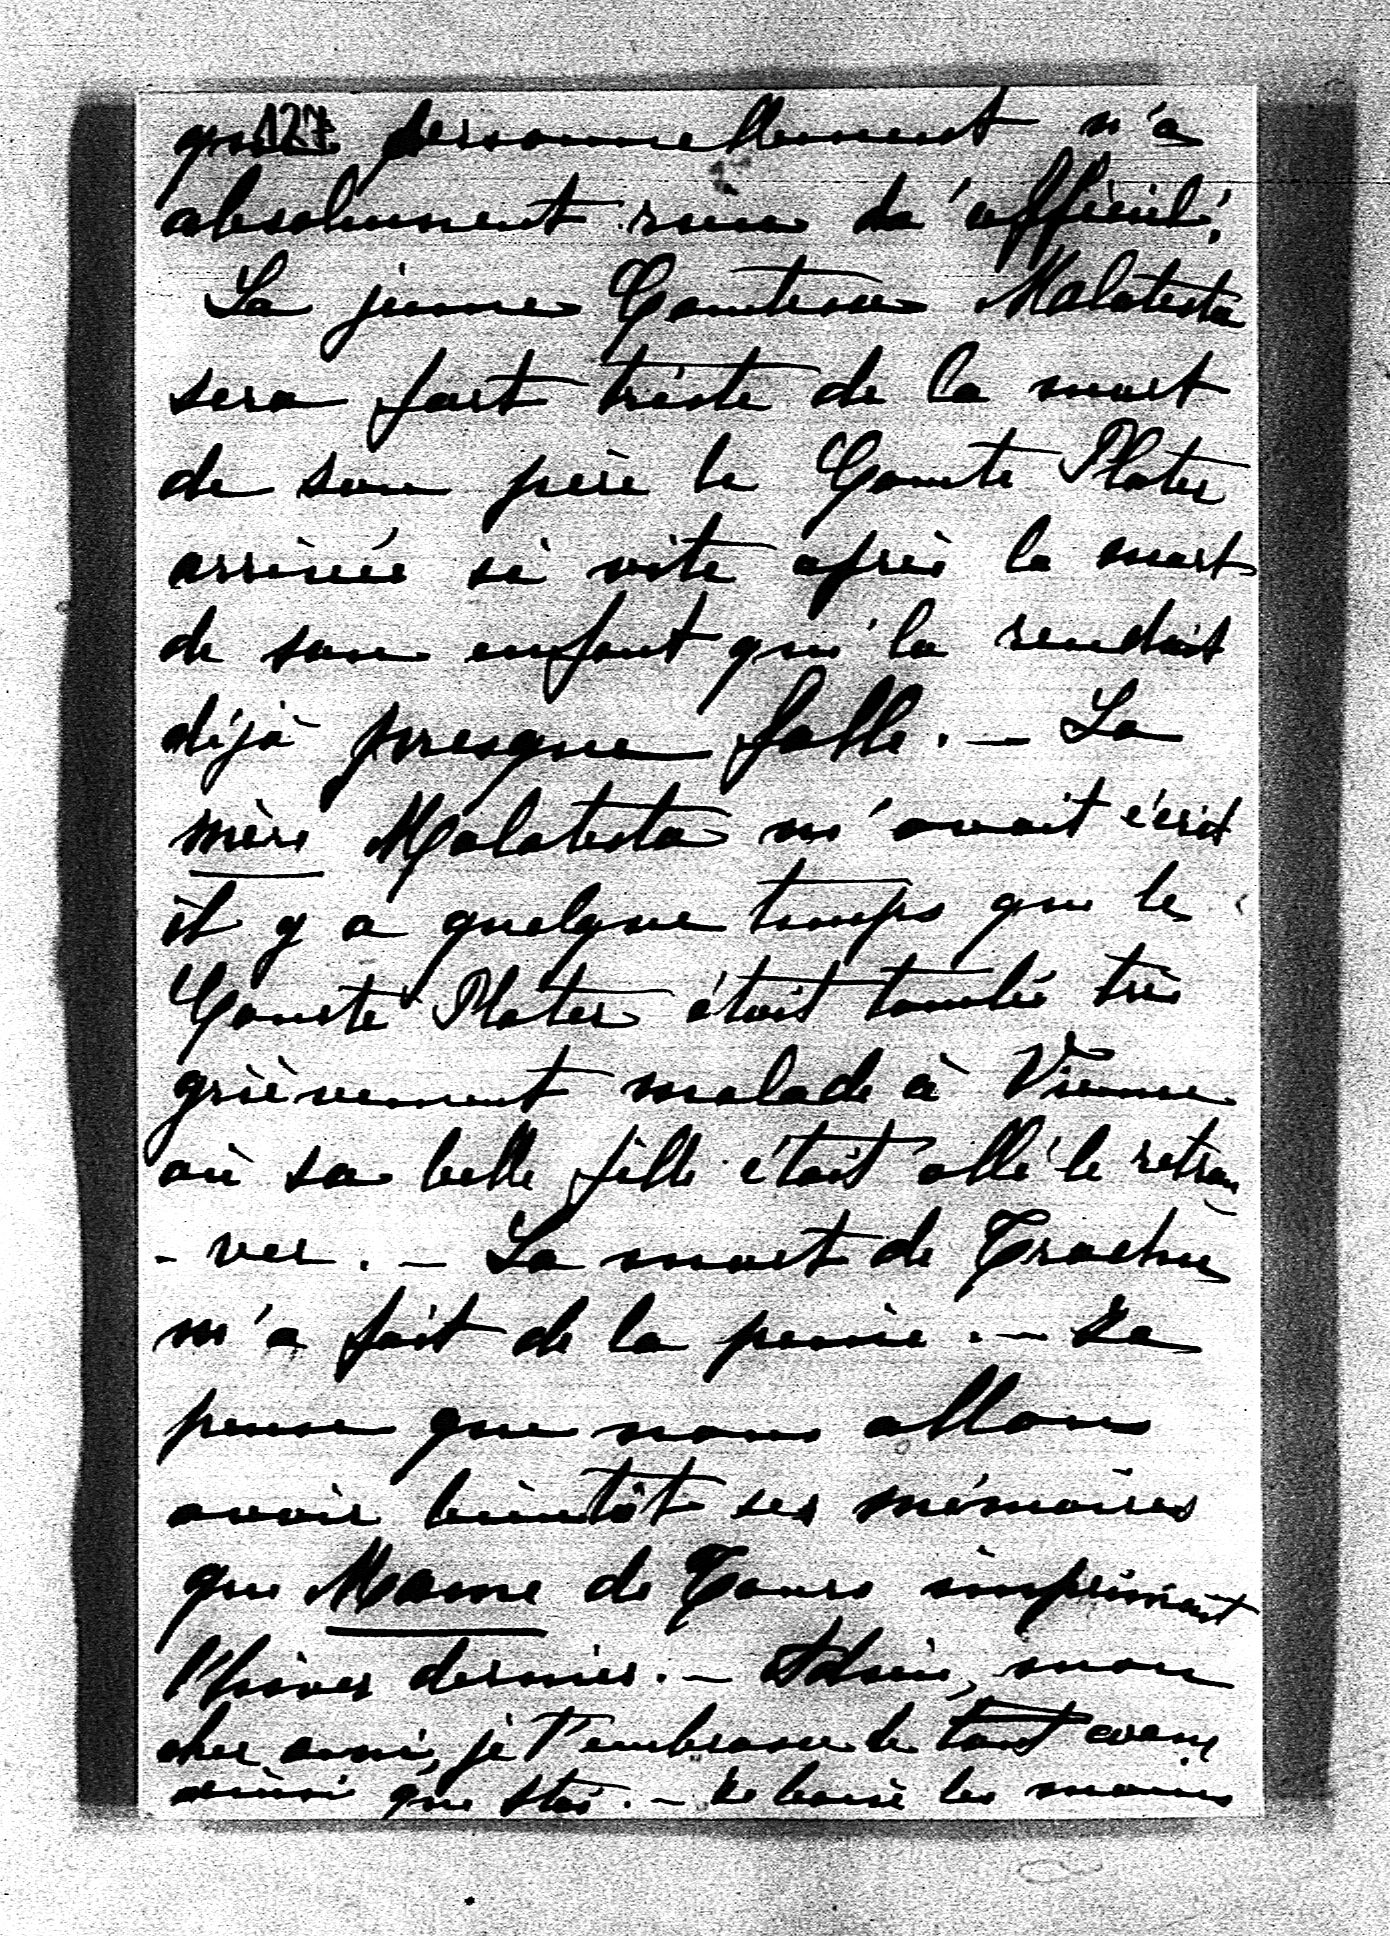 127
qui personnellement n'a
absolument rien d'officiel.
La jeune Comtesse Malatesta
sera fort triste de la mort
de son père le Comte Plater
arrivée si vite après la mort
de son enfant qui la rendait
déjà presque folle. — La
mère Malatesta m'avait écrit
il y a quelque temps que le
Comte Plater était tombé très
grièvement malade à Vienne
où sa belle fille était allé le retrou
- ver. — La mort de Trochu
m'a fait de la peine. — Je
pense que nous allons
avoir bientôt ses mémoires
que Mame de Tours imprimait
l'hiver dernier. — Adieu, mon
cher ami, je t'embrasse de tout cœur
ainsi que Stas. — Je baise les mains